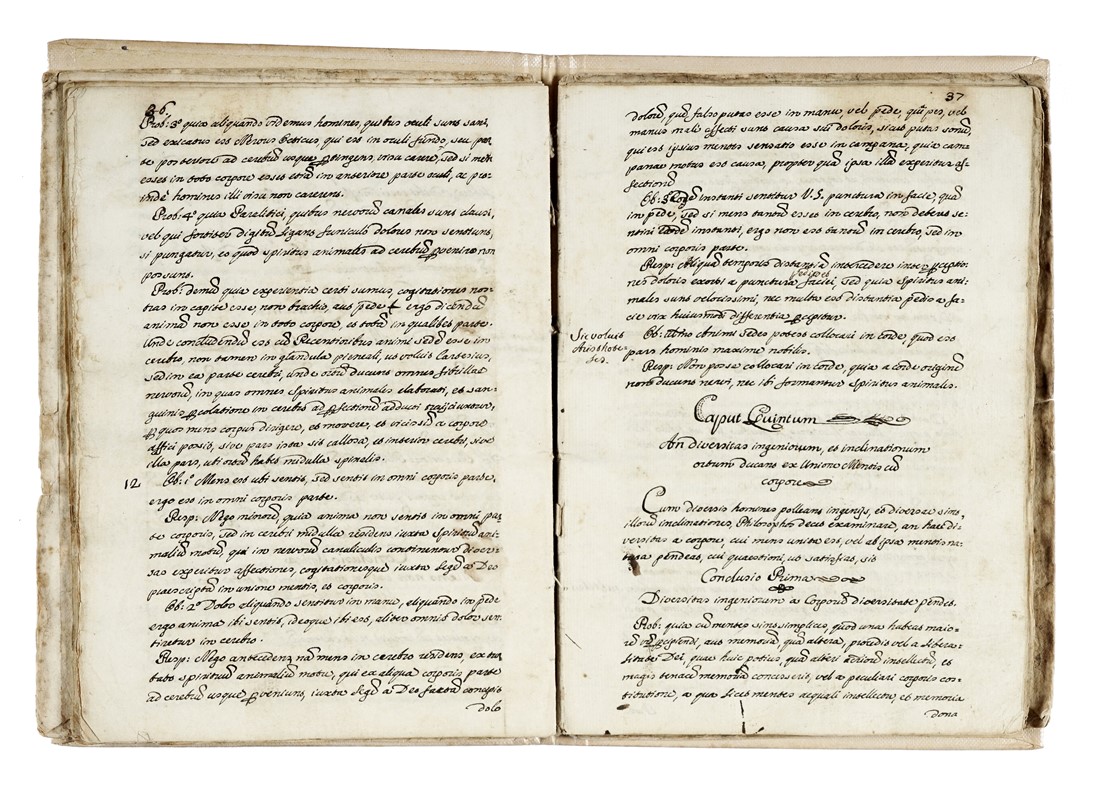 36.
Prob: 3º quia aliquando videmus homines, quibus oculi sunt sani,
sed excæcatus est Nervus Opticus, qui est in oculi fundo, seu par
te posteriori ad cerebrũ usque pertingens, visu carere, sed si mens
esset in toto corpore esset etiã in anteriore parte oculi, ac pro
inde homines illi visu non carerent.
Prob: 4º quia Paralitici, quibus nervorũ canales sunt clausi,
vel qui fortiter digitũ ligant funiculo dolorem non sentiunt,
si pungatur, eo quod spiritus animales ad cerebrũ pvenire non
possunt.
Prob: demũ quia experientia certi sumus, cogitationes nos-
tras in capite esse, non brachio, aut pede + ergo dicendũ
animũ non esse in toto corpore, et totũ in qualibet parte.
Unde concludendũ est cũ Recentioribus animi sedẽ esse in
cerebro non tamen in glandula pineali, ut voluit Cartesius,
sed in ea parte cerebri, unde ortũ ducunt omnes fibrillæ
nervorũ, in quas omnes spiritus animales elaborati, et san-
guinis pcolatione in cerebro ad pfectionẽ adducti
quot mens corpus dirigere, et movere, et vicissim a corpore
affici possit, sive pars ista sit callosa, et interior cerebri, sive
illa pars, ubi ortũ habet midulla spinalis.
12 Ob: 1º Mens est ubi sentit, sed sentit in omni corporis parte,
ergo est in omni corporis parte.
Resp: Nego minorẽ, quia anima non sentit in omni par
te corporis, sed in cerebri midulla residens iuxta spirituũ ani
maliũ motũ, qui in nervorũ canaliculis continentur diver
sas experitur affectiones, cogitationesque iuxta legẽ a Deo
præscriptã in unione mentis, et corporis.
Ob: 2º Dolor aliquando sentitur in manu, aliquando in pede
ergo anima ibi sentit, ideoque ibi est, aliter omnis dolor sen
tiretur in cerebro.
Resp: Nego antecedens nã mens in cerebro residens, ex tra
ctato spirituũ animaliũ motu, qui ex aliqua corporis parte
ad cerebrũ usque pveniunt, iuxta legẽ a Deo factam concipit
dolo
37
dolorẽ, quẽ falso putat esse in manu, vel pede, quia pes, vel
manus male affecti sunt causa sui doloris, sicut putat sonũ,
qui est ipsius mentis sensatio esse in campana, quia cam
panæ motus est causa, propter quã ipsa illã experitur af-
fectionẽ.
Ob: 3 Eodẽ instanti sentitur V. G. punctura in facie, quã
in pede, sed si mens tantũ esset in cerebro, non deberet se-
ntiri eodẽ instanti, ergo non est tantũ in cerebro, sed in
omni corporis parte.
Resp: Aliquã temporis distantiã intercedere inter pceptio
nes doloris exorti a punctura faciei, sed quia spiritus ani-
pedis et
males sunt velocissimi, nec multa est distantia pedis a fa-
cie vix huiusmodi differentia pcipitur.
Ob: Ultro Animi sedes potest collocari in corde, quod est
pars hominis maxime nobilis.
Sic voluit
Aristhote-
les.
Resp: Non posse collocari in corde, quia a corde originẽ
non ducunt nervi, nec ibi formantur spiritus animales.
Caput Quintum
An diversitas ingeniorum, et inclinationum
ortum ducant ex Unione Mentis cũ
corpore
Cum diversis homines polleant ingeniis, et diversæ sint
illorũ inclinationes, Philosophos decet examinare, an hæc di-
versitas a corpore, cui mens unita est, vel ab ipsa mentis na-
tura pendeat, cui quæstioni, ut satisfiat, sit
Conclusio Prima
Diversitas ingeniorum a Corporũ diversitate pendet.
Prob: quia cũ mentes sint simplices, quod una habeat maio-
rẽ vim pcipiendi, aut memoriã, quã altera, provenit vel a libera-
litate Dei, quæ huic potius, quã alteri intellectũ, et
magis tenacẽ memoriã concesserit, vel a peculiari corporis con-
stitutione, a qua licet mentes æquali intellectu, et memoria
dona